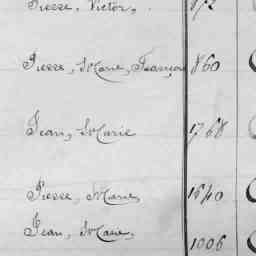 Pierre, Victor, 872
Pierre, Marie, François 860
Jean, Marie 1768
Pierre, Marie, 1640
Jean, Marie, 1006